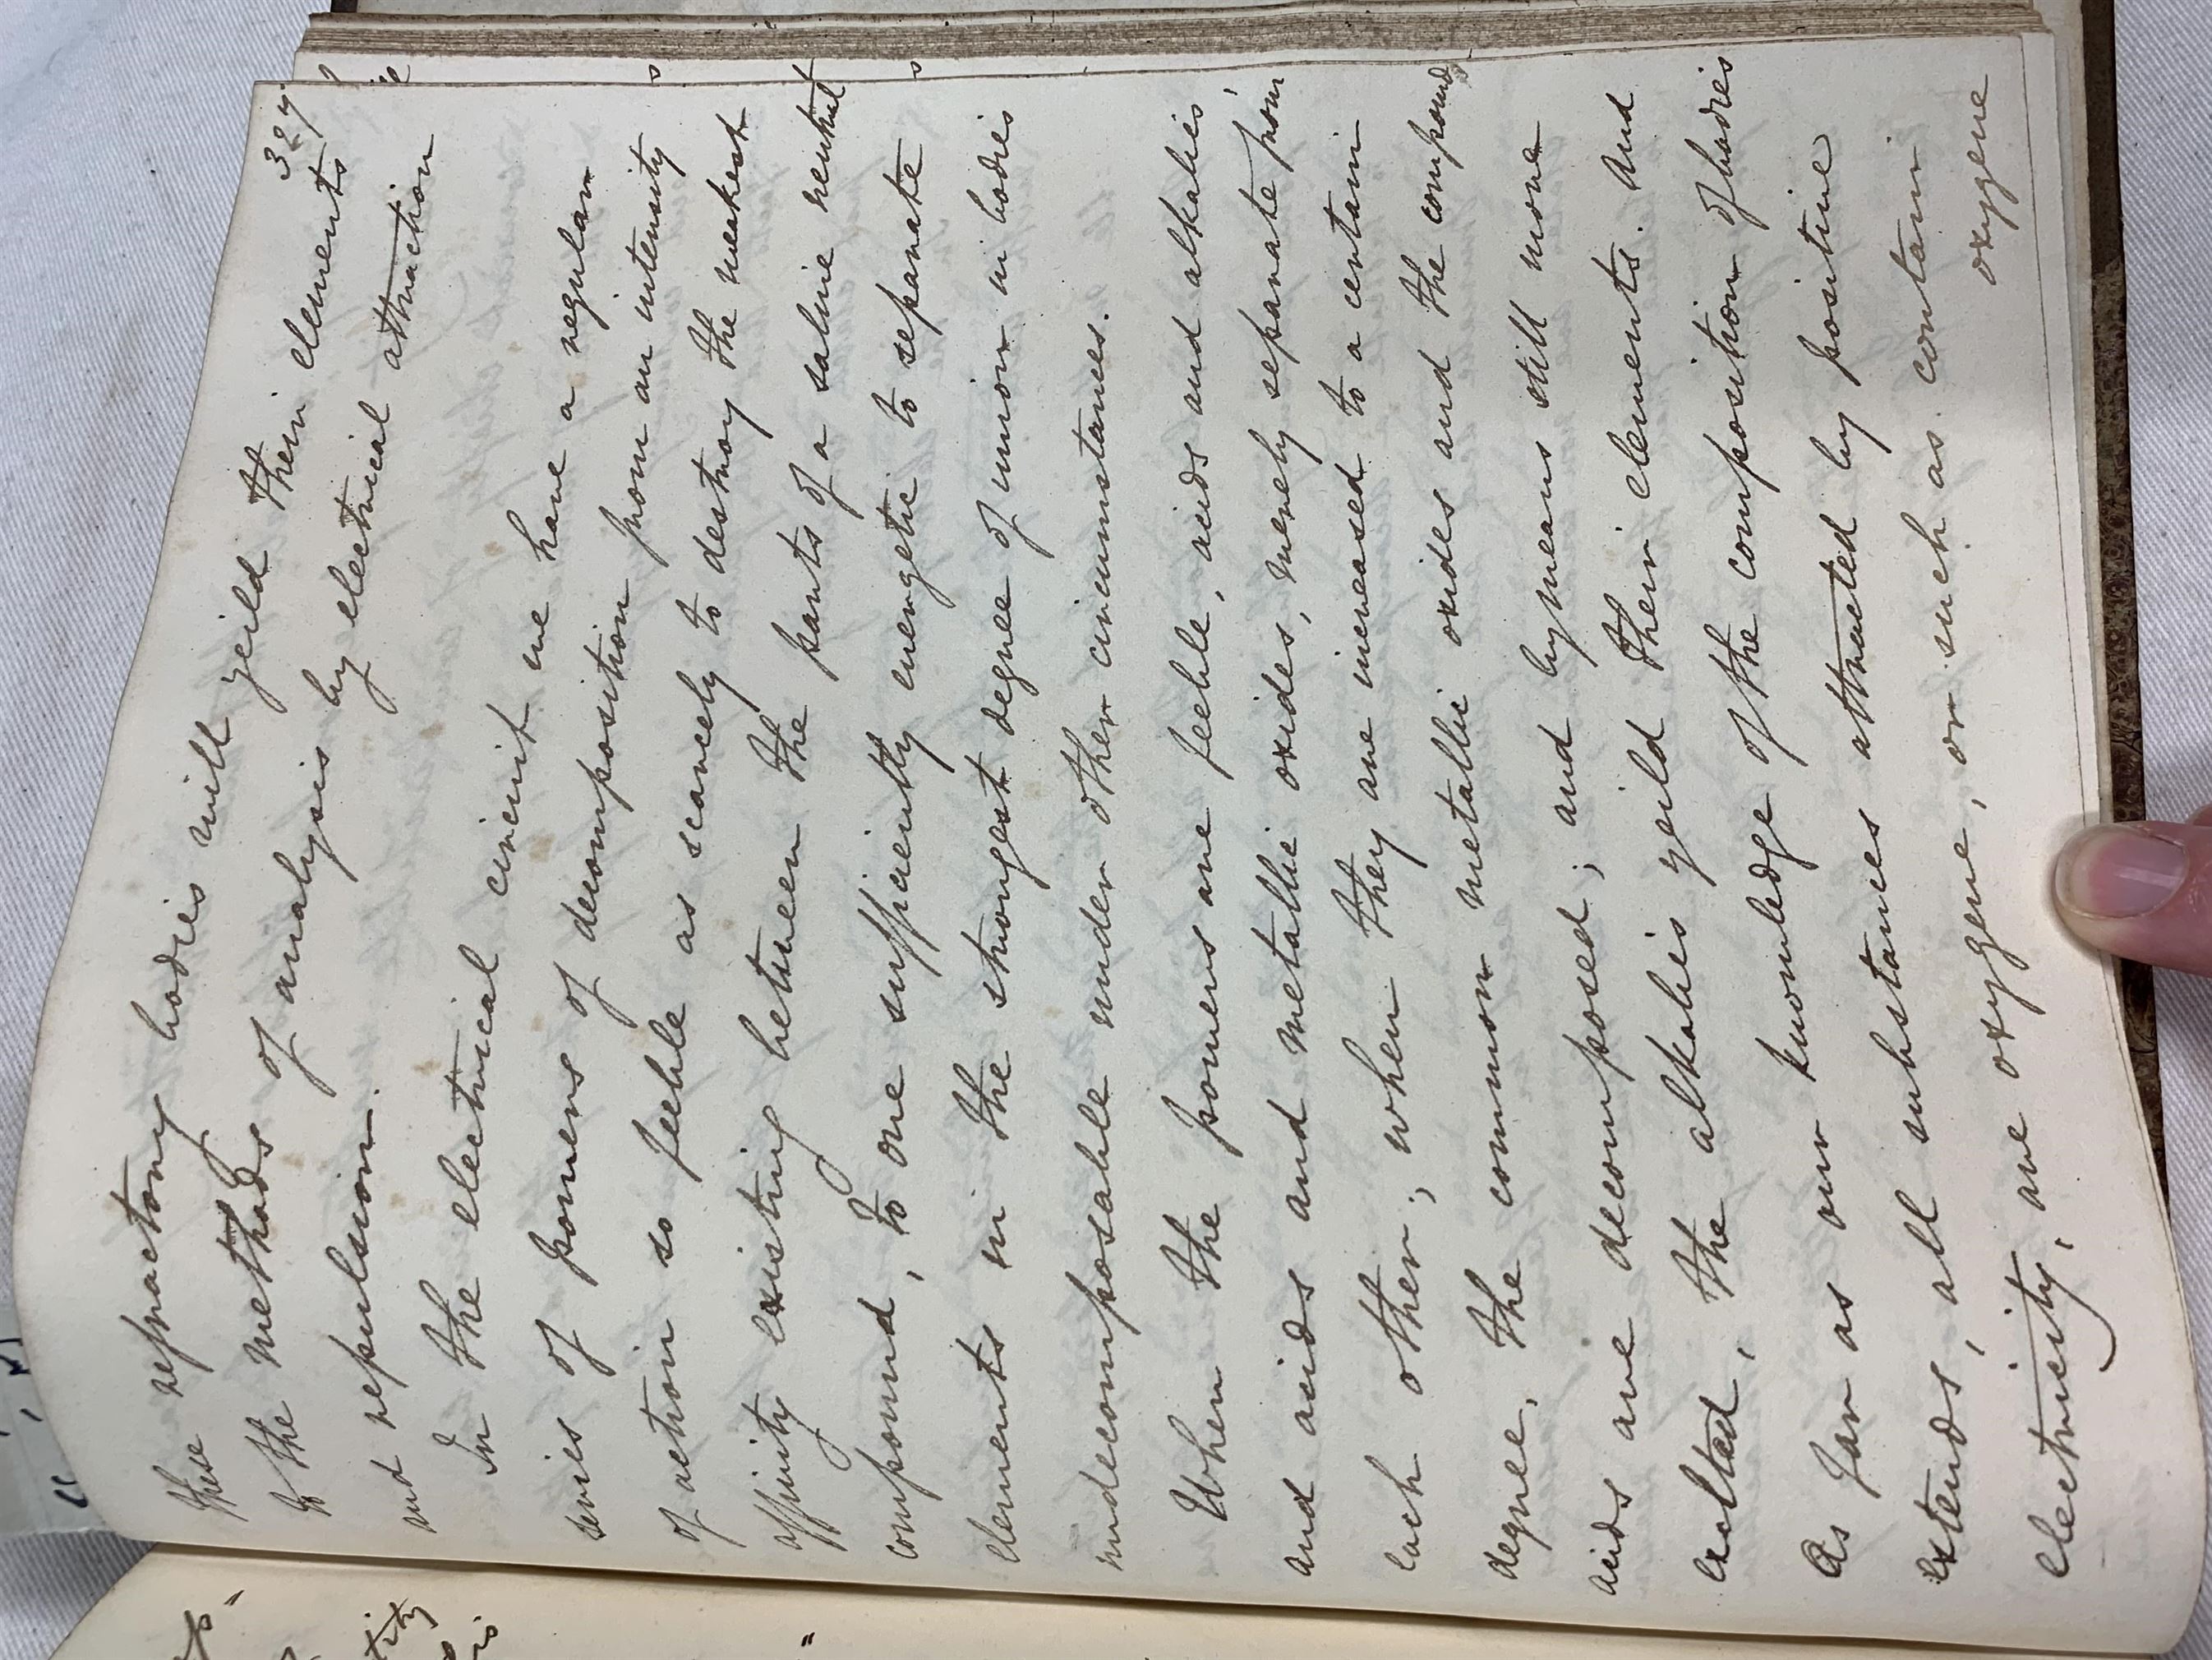 327
these refractory bodies will yeild their elements
to the methods of analysis by electrical attraction
and repulsion.
In the electrical circuit we have a regular
series of powers of decomposition from an intensity
of action so feeble as scarcely to destroy the weakest
affinity existing between the parts of a saline neutral
compound, to one sufficiently energetic to separate
elements in the strongest degree of union in bodies
undecomposable under other circumstances.
When the powers are feeble, acids and alkalies,
and acids and metallic oxides, merely separate from
each other; when they are increased to a certain
degree, the common metallic oxides and the compound
acids are decomposed; and by means still more
exalted, the alkalis yeild their elements. And
As far as our knowledge of the composition of bodies
extends, all substances attracted by positive
electricity, are oxygene, or such as contain
oxygene